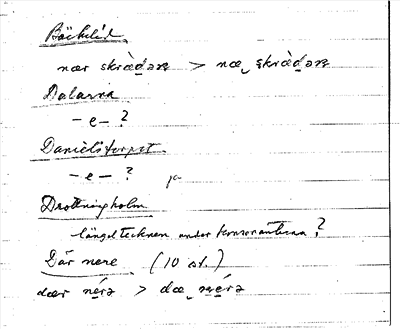 Bäcklid
nær skràdərs > næ skràdərs
Dalarna
– e – ?
Danielstorpet
– e – ? ja
Drottningholm
längdtecknen under konsonanterna?
Där nere (10 st.)
dær nérə > dæ nérə